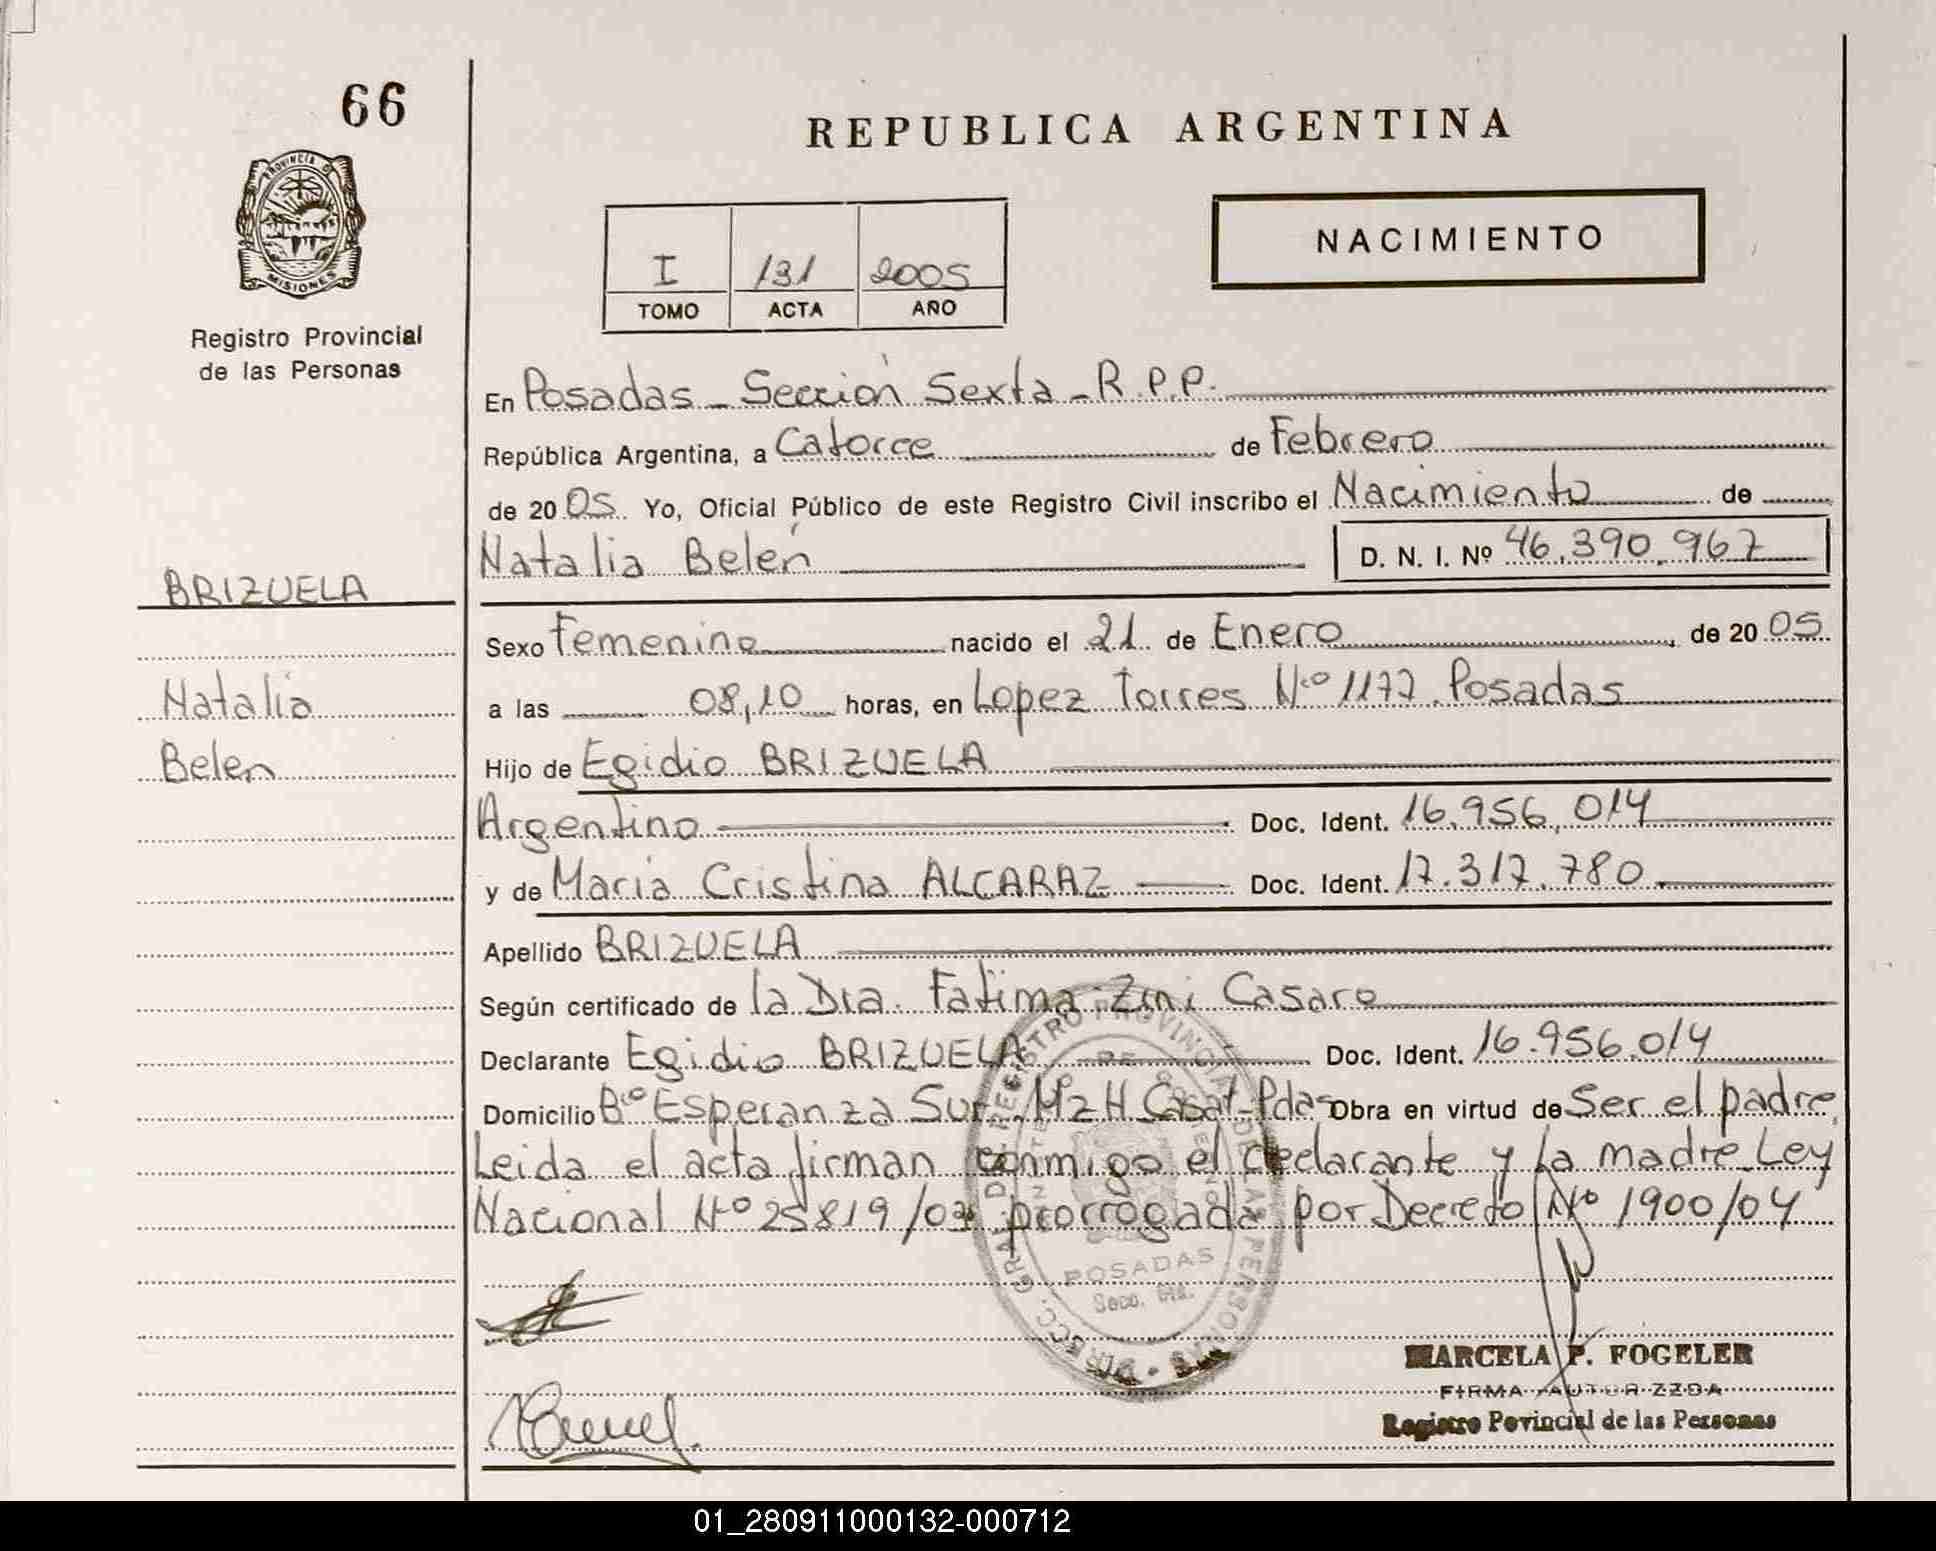 66
REPUBLICA ARGENTINA
PROVINCIA DE
MISIONES
Registro Provincial
de las Personas
I 131 2005
TOMO ACTA AÑO
NACIMIENTO
En Posadas - Sección Sexta - R.P.P.
República Argentina, a Catorce de Febrero
de 2005 Yo, Oficial Público de este Registro Civil inscribo el Nacimiento de
Natalia Belén D. N. I. Nº 46.390.967
BRIZUELA
Sexo Femenino nacido el 21 de Enero, de 2005
Natalia
a las 08,10 horas, en Lopez Torres Nº 1177 Posadas
Belen
Hijo de Egidio BRIZUELA
Argentino Doc. Ident. 16.956.014
y de Maria Cristina ALCARAZ Doc. Ident. 17.317.780
Apellido BRIZUELA
Según certificado de la Dra. Fatima Zini Casaro
Declarante Egidio BRIZUELA Doc. Ident. 16.956.014
Domicilio Bº Esperanza Sur Mz H Pdas Obra en virtud de Ser el padre
Leida el acta firman conmigo el declarante y La madre Ley
Nacional Nº 25819/03 prorrogada por Decreto Nº 1900/04
DIRECC. GRAL. DE REGISTRO PROVINCIAL DE LAS PERSONAS
POSADAS
Secc.
MARCELA F. FOGELER
FIRMA AUTORIZZDA
Registro Povincial de las Personas
01_280911000132-000712